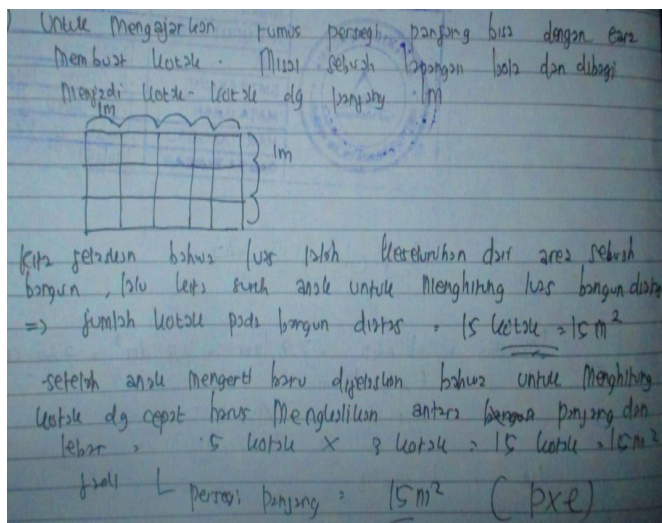 Untuk Mengajarkan rumus persegi panjang bisa dengan cara
Membuat kotak. Misal sebuah lapangan bola dan dibagi
Menjadi kotak-kotak dg panjang 1m
1m
1m
Kita jelaskan bahwa luas ialah keseluruhan dari area sebuah
bangun, lalu kita suruh anak untuk Menghitung luas bangun diatas
=> Jumlah kotak pada bangun diatas = 15 kotak = 15 m²
-setelah anak mengerti baru dijelaskan bahwa untuk Menghitung
kotak dg cepat harus Mengkalikan antara panjang dan
lebar = 5 kotak x 3 kotak = 15 kotak = 15 m²
Jadi L persegi panjang = 15 m² (pxl)